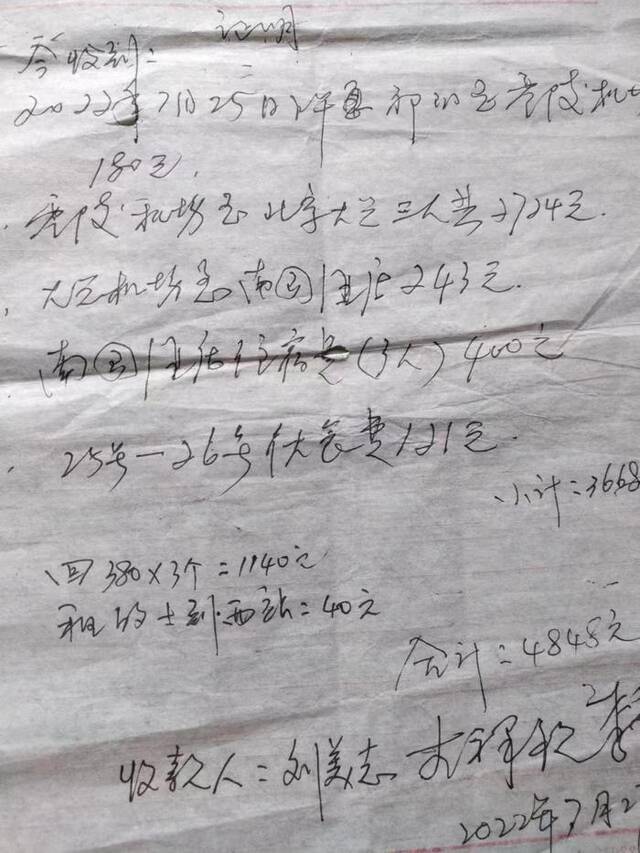 证明
今收到:
2022年7月25日 至黄陂机
180元.
黄陂机场至北京大兴三人共2724元.
大兴机场至南国酒店243元.
南国酒店住宿是(3人)400元
25号—26号伙食费121元.
小计=3668
回380×3个=1140元
租的士到西站=40元
合计=4848元
收款人=刘美志
2022年7月2